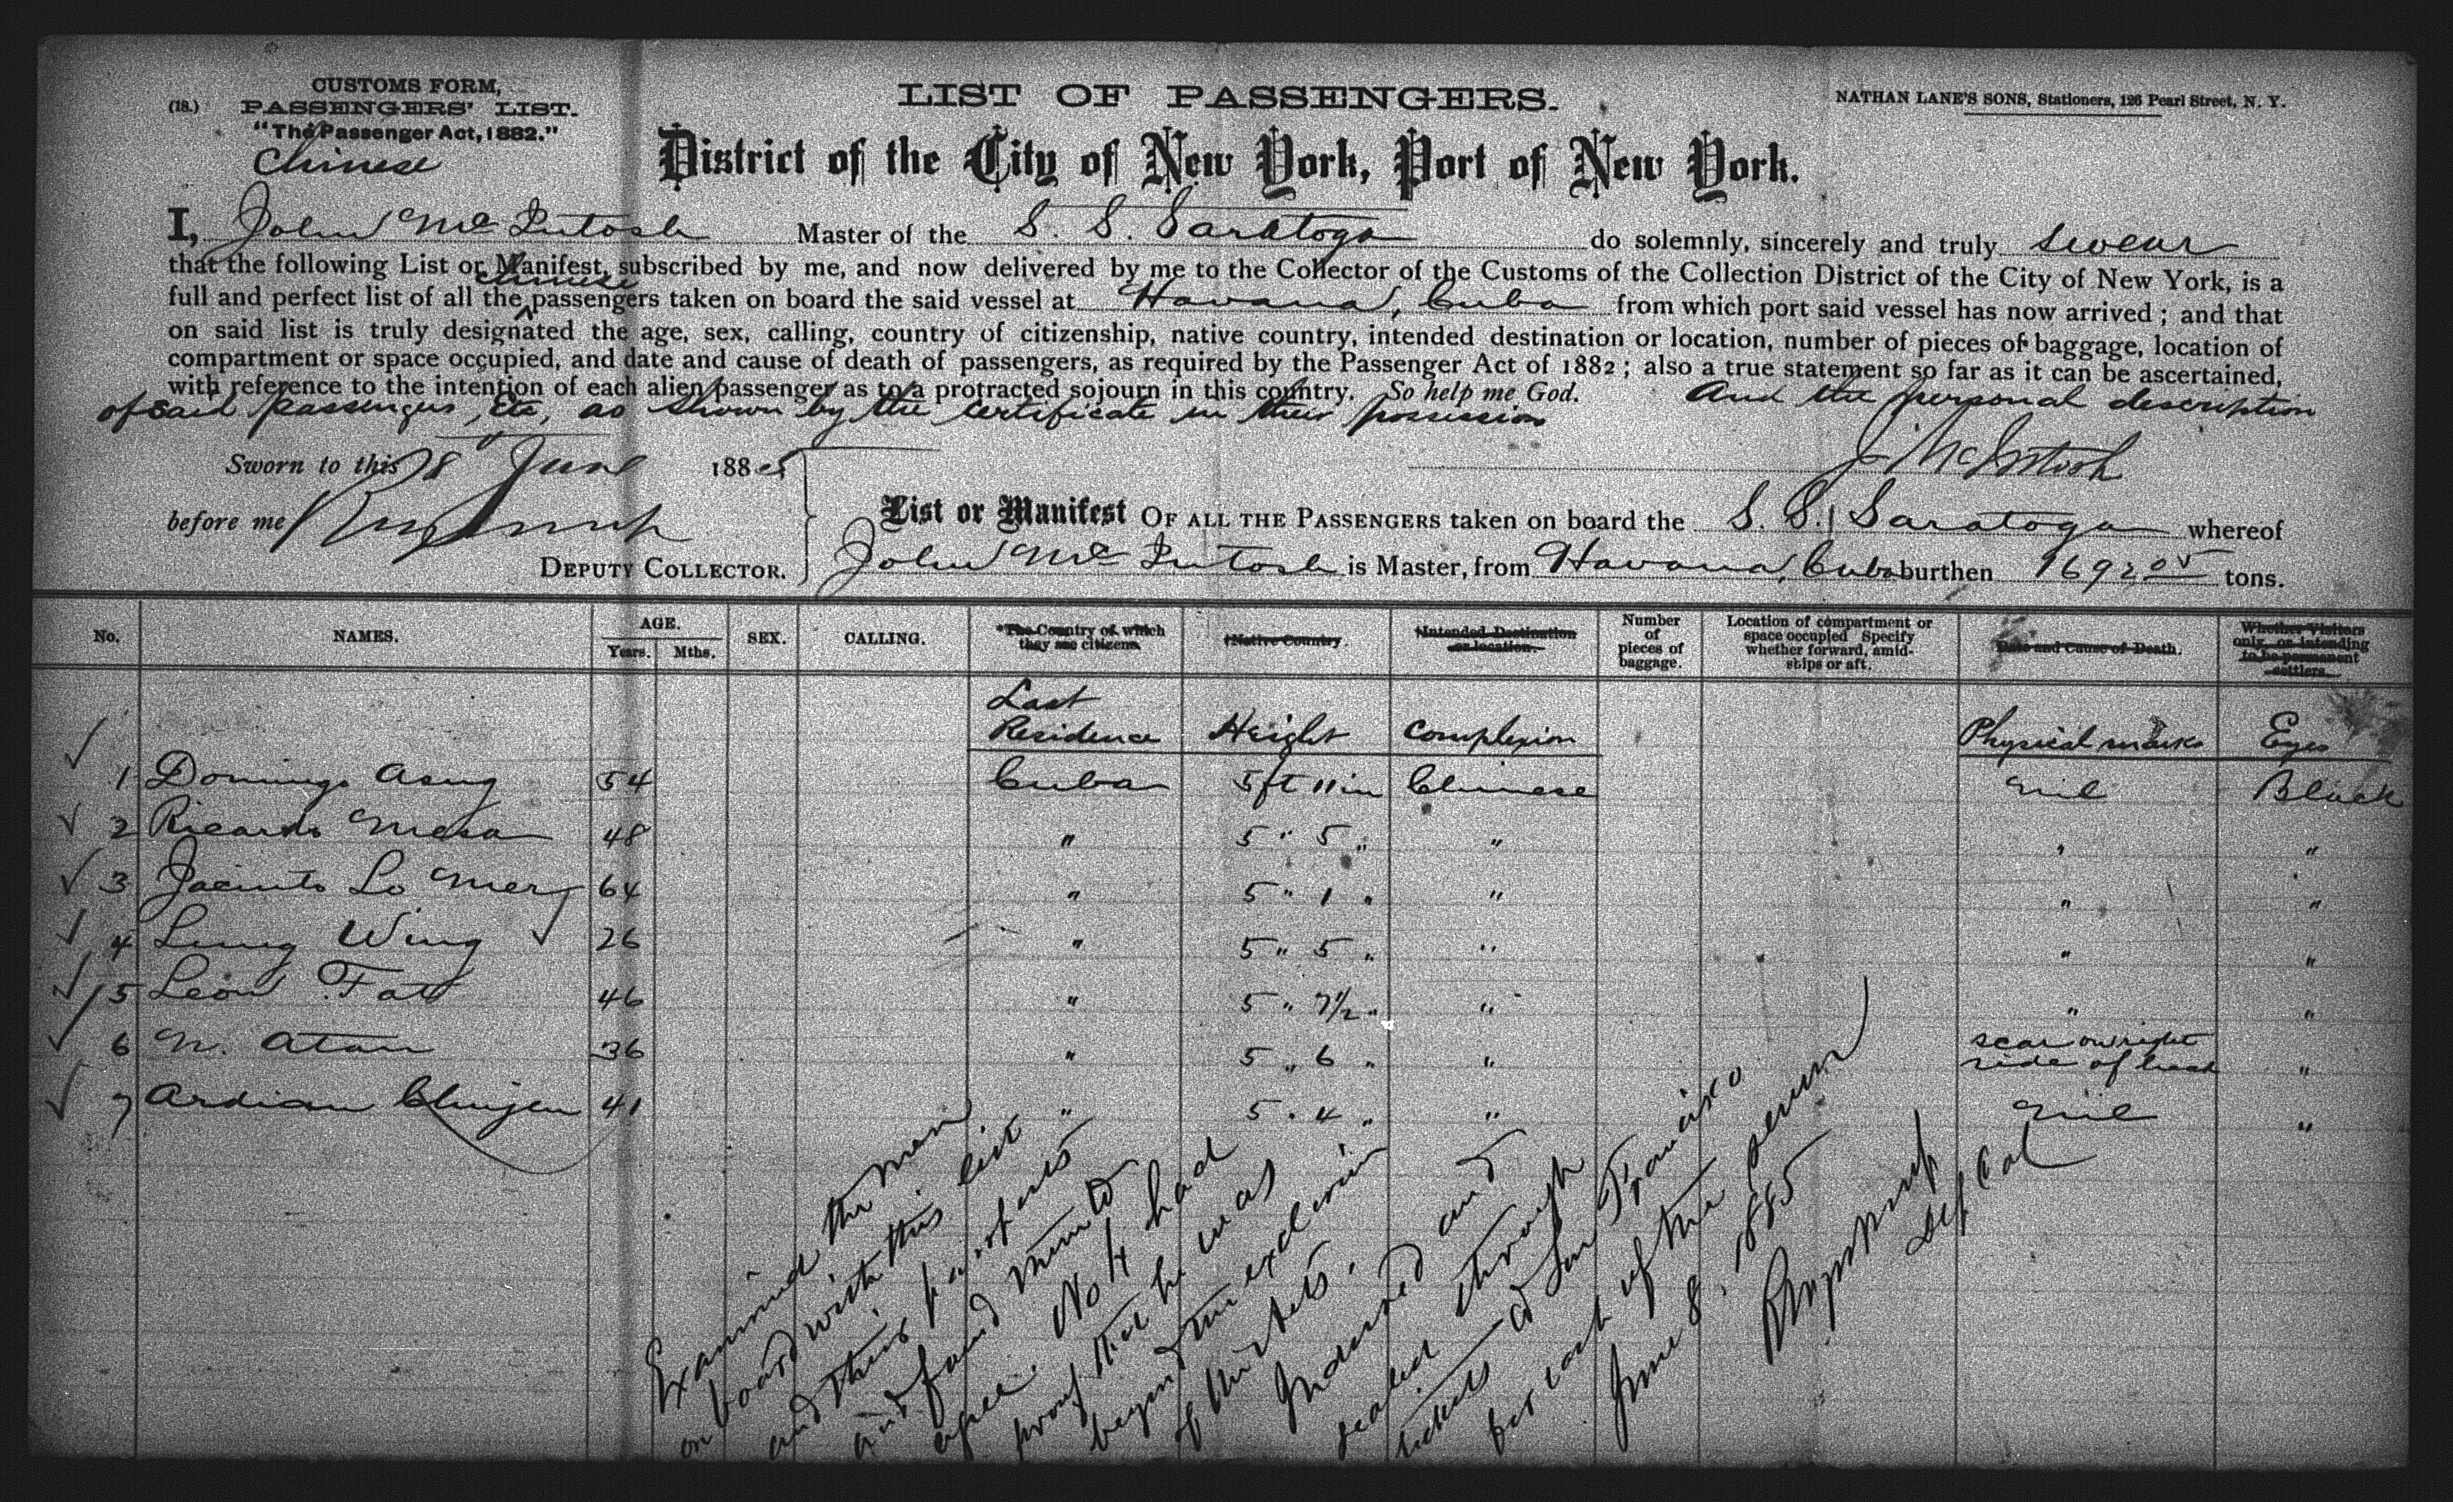 CUSTOMS FORM,
(18.) PASSENGERS' LIST.
"The Passenger Act, 1882."
Chinese
LIST OF PASSENGERS.
NATHAN LANE'S SONS, Stationers, 126 Pearl Street, N. Y.
District of the City of New York, Port of New York.
I, John McIntosh Master of the S. S. Saratoga do solemnly, sincerely and truly swear
that the following List or Manifest, subscribed by me, and now delivered by me to the Collector of the Customs of the Collection District of the City of New York, is a
Chinese
full and perfect list of all the passengers taken on board the said vessel at Havana, Cuba from which port said vessel has now arrived; and that
on said list is truly designated the age, sex, calling, country of citizenship, native country, intended destination or location, number of pieces of baggage, location of
compartment or space occupied, and date and cause of death of passengers, as required by the Passenger Act of 1882; also a true statement so far as it can be ascertained,
with reference to the intention of each alien passenger as to a protracted sojourn in this country. So help me God. And the personal description
of said passengers, etc, as shown by the certificate in their possession
Sworn to this 8th June 1885
J McIntosh
before me
DEPUTY COLLECTOR.
List or Manifest OF ALL THE PASSENGERS taken on board the S. S. Saratoga whereof
John McIntosh is Master, from Havana, Cuba burthen 1692 05 tons.
No. NAMES. AGE. Years. Mths. SEX. CALLING. *The Country of which they are citizens †Native Country ‡Intended Destination or location. Number of pieces of baggage. Location of compartment or space occupied Specify whether forward, amidships or aft. Date and Cause of Death. Whether Visitors only, or intending to be permanent settlers.
Last Residence Height Complexion Physical marks Eyes
1 Domingo Asng 54 Cuba 5 ft 11 in Chinese Nil Black
2 Ricardo Mesa 48 " 5 " 5 " " " "
3 Jacinto Lo Mery 64 " 5 " 1 " " " "
4 Lung Wing 26 " 5 " 5 " " " "
5 Leon Fat 46 " 5 " 7½ " " " "
6 N. Atan 36 " 5 " 6 " " scar on right side of head "
7 Ardian Chinjen 41 " 5 " 4 " " Nil "
Examined the men
on board with this list
and their passports
and found them to
agree. No 4 had
proof that he was
beyond the excluding
of limits.
Indorsed and
sealed through
tickets to San Francisco
for each of the seven
June 8, 1885
Dep Col